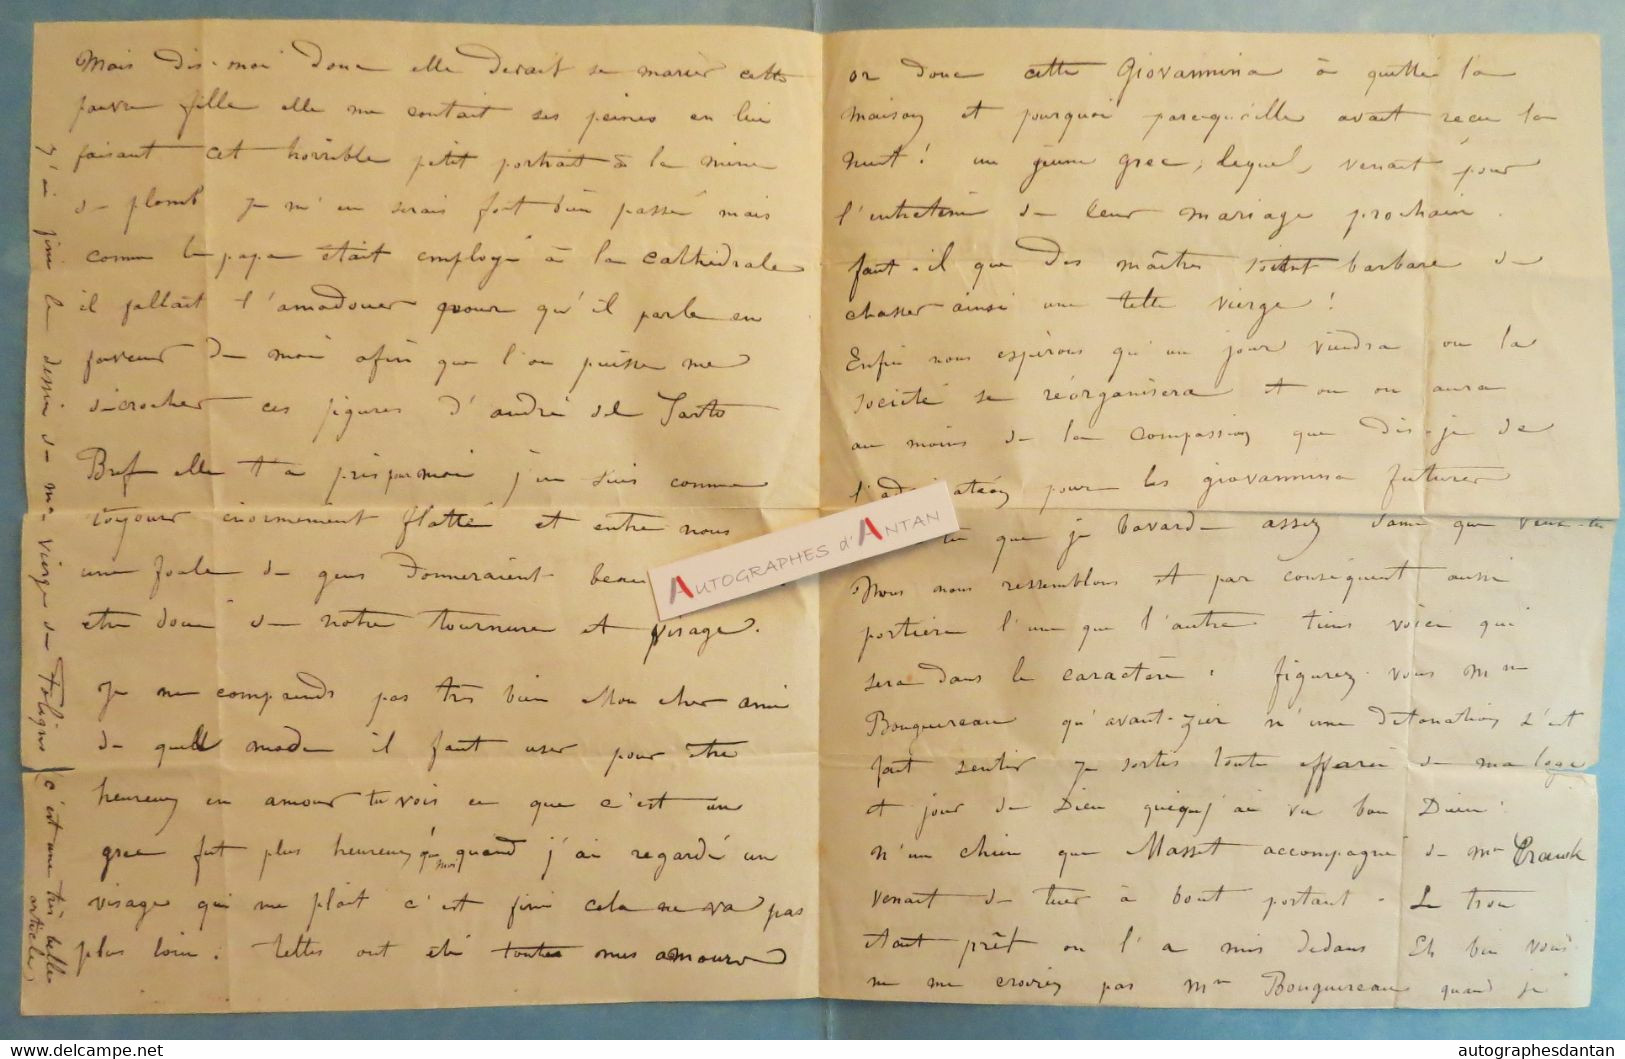 Mais dis-moi donc elle devait se marier cette
pauvre fille elle me contait ses peines en lui
faisant cet horrible petit portrait à la mine
de plomb je m'en serais fort bien passé mais
comme le papa était employé à la cathédrale
il fallait l'amadouer pour qu'il parle en
faveur de moi afin que l'on puisse me
décrocher ces figures d'andré del Sarto
Bref elle t'a pris pour moi j'en suis comme
toujours énormement flatté et entre nous
une foule de gens donneraient beau
etre doué de notre tournure et visage.
Je ne comprends pas très bien Mon cher ami
de quell mode il faut user pour être
heureux en amour tu vois ce que c'est un
grec fut plus heureux que moi quand j'ai regardé un
visage qui me plait c'est fini cela ne va pas
plus loin : telles ont été toutes mes amours
j'ai fini le dessin de ma vierge de Foligno (c'est une très belle
article)
or donc cette Giovannina à quitté la
maison et pourquoi parcequ'elle avait reçu la
nuit ! un jeune grec, lequel, venait pour
l'entretenir de leur mariage prochain.
faut-il que des maîtres soient barbare de
chasser ainsi une telle vierge !
Enfin nous espérons qu'un jour viendra ou la
société se réorganisera et ou on aura
au moins de la compassion que dis-je de
l'ad ation pour les giovannina futures
tu que je bavarde assez dame que veux-tu
Nous nous ressemblons et par conséquent aussi
portière l'un que l'autre. tiens voici qui
sera dans le caractère : figurez-vous Mme
Bouguereau qu'avant-zier n'une détonation s'est
fait sentir je sortis toute effarée de ma loge
et jour de Dieu quéquej'ai vu bon Dieu !
n'un chien que Masset accompagné de mr Cranck
venait de tuer à bout portant. Le trou
était prêt on l'a mis dedans Eh bien vous
ne me croirez pas Mme Bouguereau quand je
AUTOGRAPHES d'ANTAN
autographesdantan